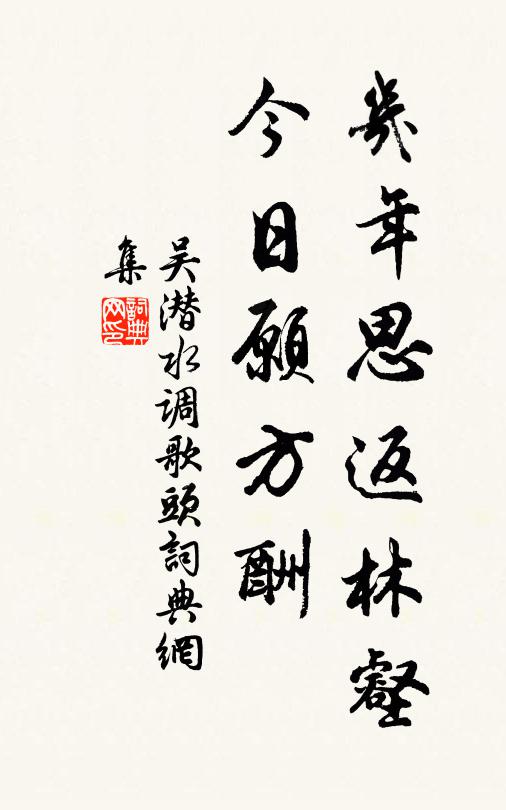 幾年思返林壑
今日願方酬
吴潜水调歌頭詞典網
集
詞典网印